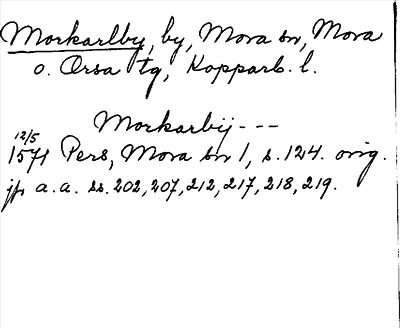 Morkarlby, by, Mora sn, Mora
o. Orsa tg, Kopparb. l.
Morkarbij ---
12/5
1571 Pers, Mora sn 1, s. 124. orig.
jfr a.a. ss. 202, 207, 212, 217, 218, 219.